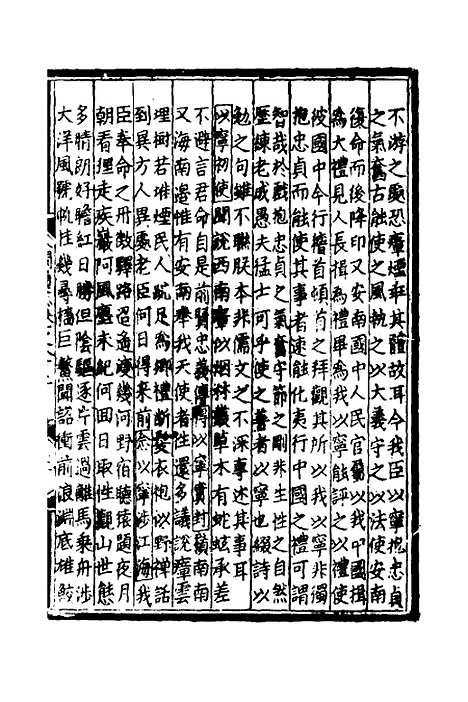 不游之處恐瘴煙卒其體故耳今我臣以寧抱忠貞
之氣奮古能使之風執之以大義守之以法使安南
復命而後降印又安南國中人民官為我中國揖
為大禮見人長揖為禮畢為我以寧能評之以禮使
彼國中今行稽首頓首之拜觀其所以我以寧非獨
抱忠貞而能使其事者速能化夷行中國之禮可謂
智哉於戲抱忠貞之氣奮守節之剛非生性之自然
歷練老成愚夫猛士何可乎使之善者以寧也綴詩以
勉之句雖不聯朕本非儒文之不深專述其事耳
以寧初使聞說西南以烟林叢草木有蛇虺承差
不避言君命自是前賢忠義傳將以寧實封嶺南南
又海南邊惟有安南奉我天使者生還多議說瘴雲
埋樹若堆煙民人跣足為鄉禮斷髮衣袍以野禪話
到異方人異處老臣何日得來前愈以寧涉江海我
臣奉命之丹數驛路迢遥凄幾河野伯聴猿題夜月
朝看狸走疾巖阿風塵未紀何回日取性觀山世態
多晴朗好瞻紅日勝但陰驅逐片雲過離馬乘舟涉
大洋風號帆桂幾尋檣巨鰲聞詔衝前浪渊底雄鯨